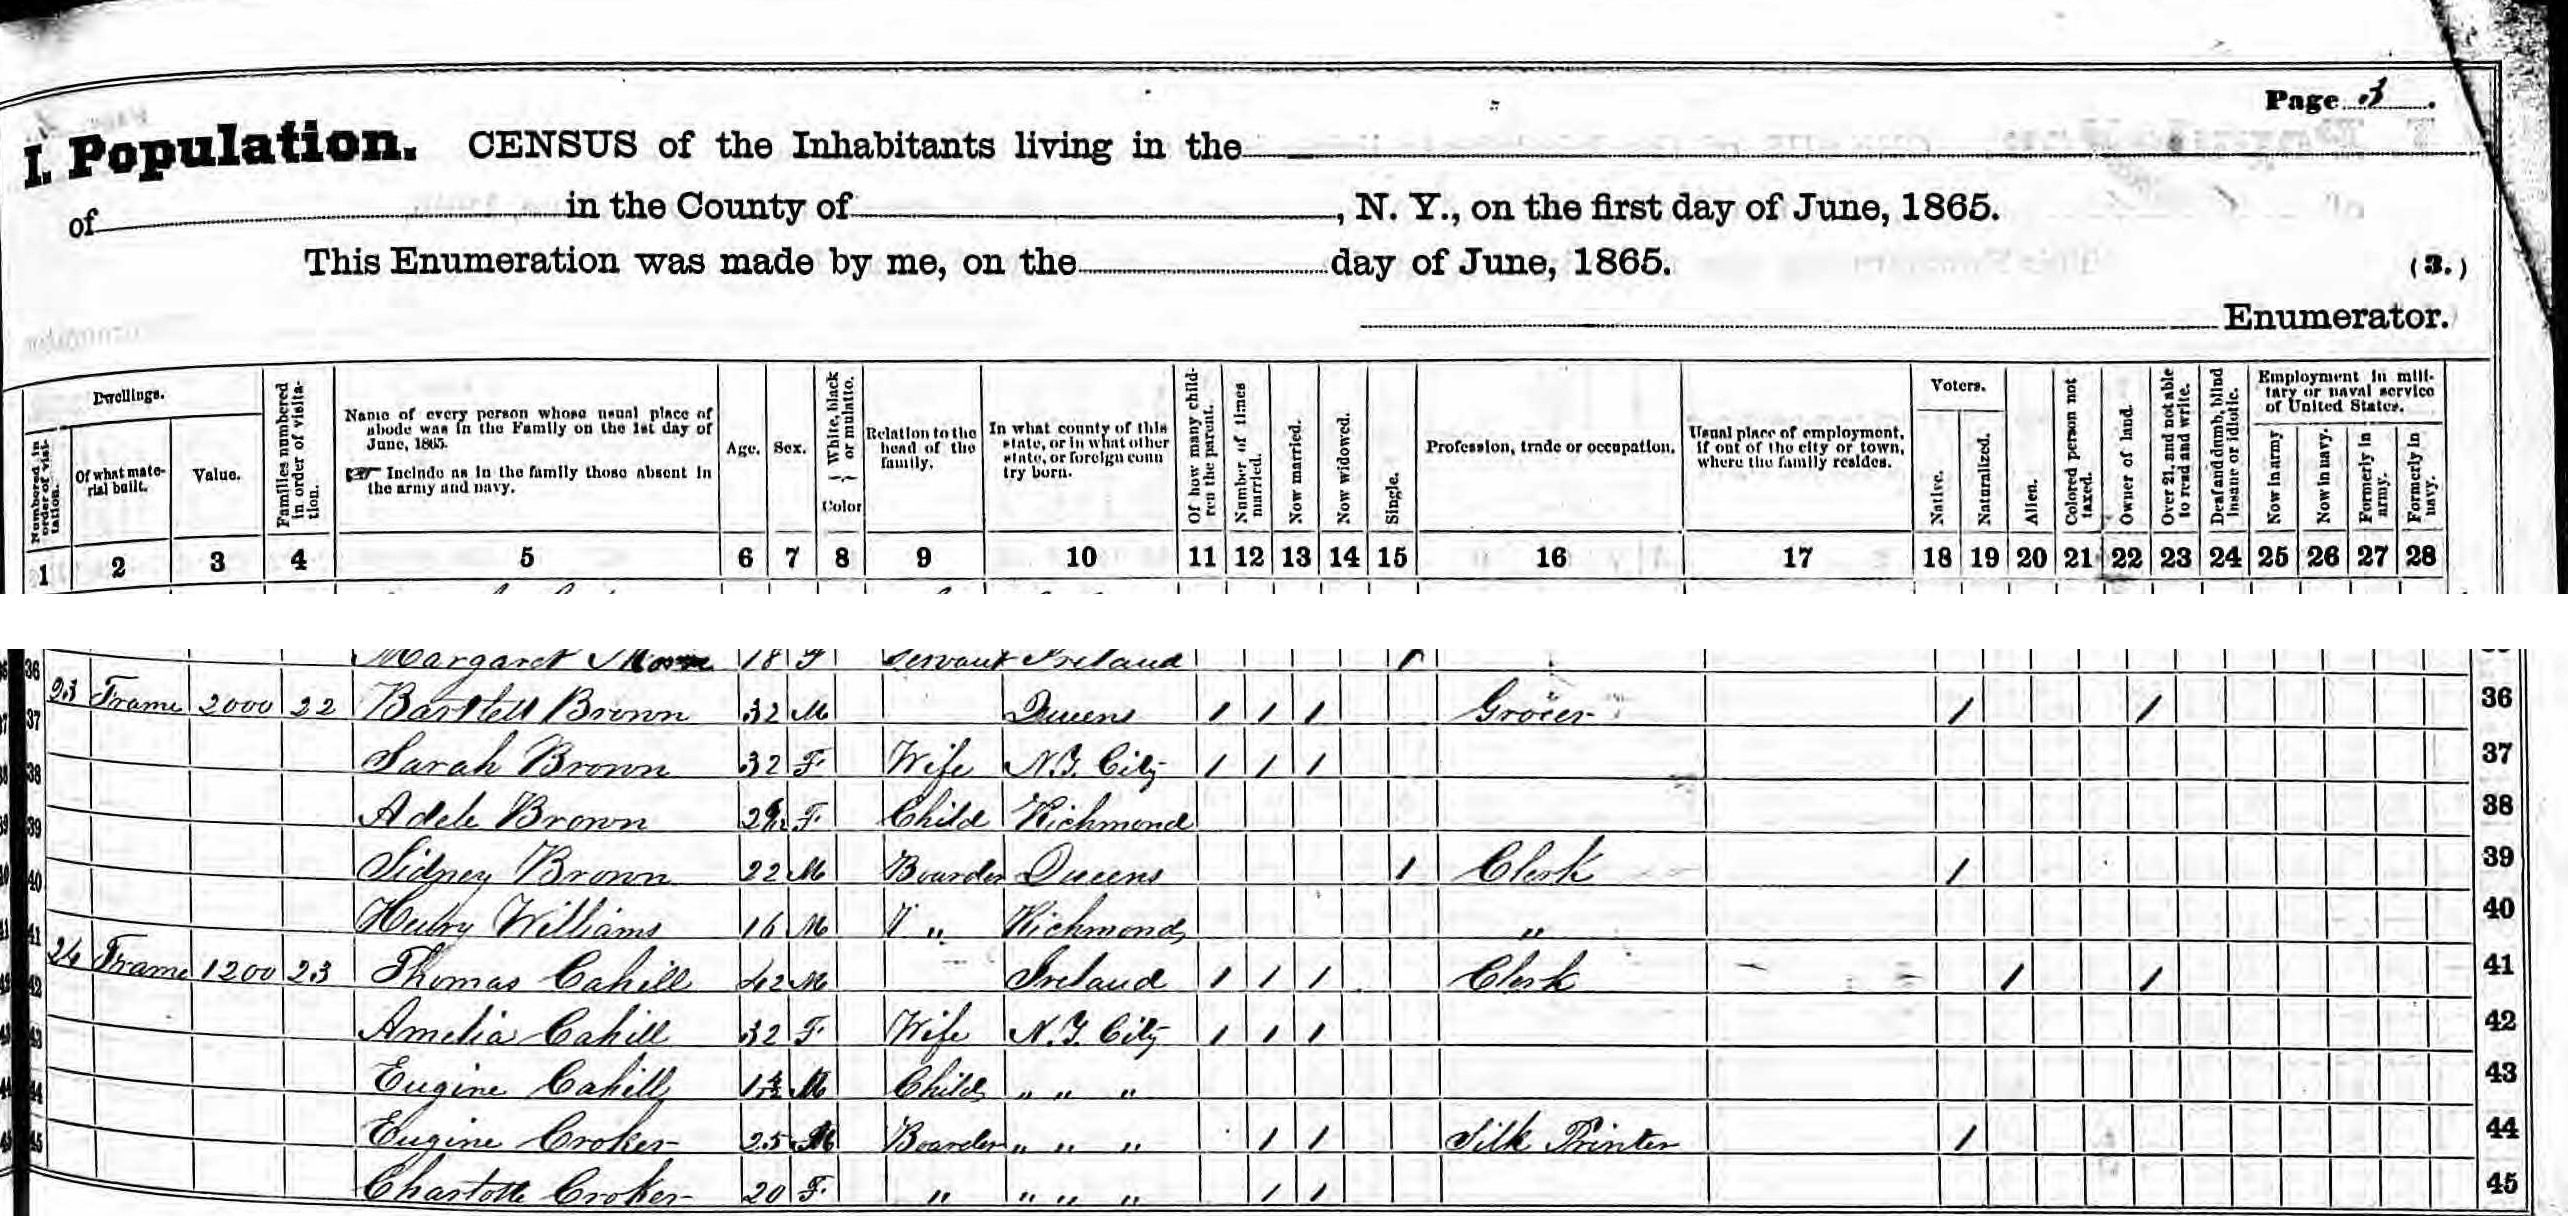 Page 3.
I. Population. CENSUS of the Inhabitants living in the
of in the County of , N. Y., on the first day of June, 1865.
This Enumeration was made by me, on the day of June, 1865.
(3.)
Enumerator.
Dwellings.
Numbered in order of visitation.
Of what material built.
Value.
Families numbered in order of visitation.
Name of every person whose usual place of abode was in the Family on the 1st day of June, 1865.
☞ Include as in the family those absent in the army and navy.
Age.
Sex.
White, black or mulatto.
Color
Relation to the head of the family.
In what county of this state, or in what other state, or foreign coun try born.
Of how many children the parent.
Number of times married.
Now married.
Now widowed.
Single.
Profession, trade or occupation.
Usual place of employment, if out of the city or town, where the family resides.
Voters.
Native.
Naturalized.
Alien.
Colored person not taxed.
Owner of land.
Over 21, and not able to read and write.
Deaf and dumb, blind insane or idiotic.
Employment in military or naval service of United States.
Now in army
Now in navy.
Formerly in army.
Formerly in navy.
1 2 3 4 5 6 7 8 9 10 11 12 13 14 15 16 17 18 19 20 21 22 23 24 25 26 27 28
36 Margaret 18 F Servant Ireland 1
23 Frame 2000 22 Bartlett Brown 32 M Queens 1 1 1 Grocer 1 1 36
37 Sarah Brown 32 F Wife N.Y. City 1 1 1 37
38 Adele Brown F Child Richmond 38
39 Sidney Brown 22 M Boarder Queens 1 Clerk 1 39
40 Henry Williams 16 M " Richmond " 40
41 24 Frame 1200 23 Thomas Cahill 42 M Ireland 1 1 1 Clerk 1 1 41
42 Amelia Cahill 32 F Wife N.Y. City 1 1 1 42
43 Eugine Cahill M Child " " " 43
44 Eugine Croker 25 M Boarder " " " 1 1 Silk Printer 1 44
45 Charlotte Croker 20 F " " " " 1 1 45